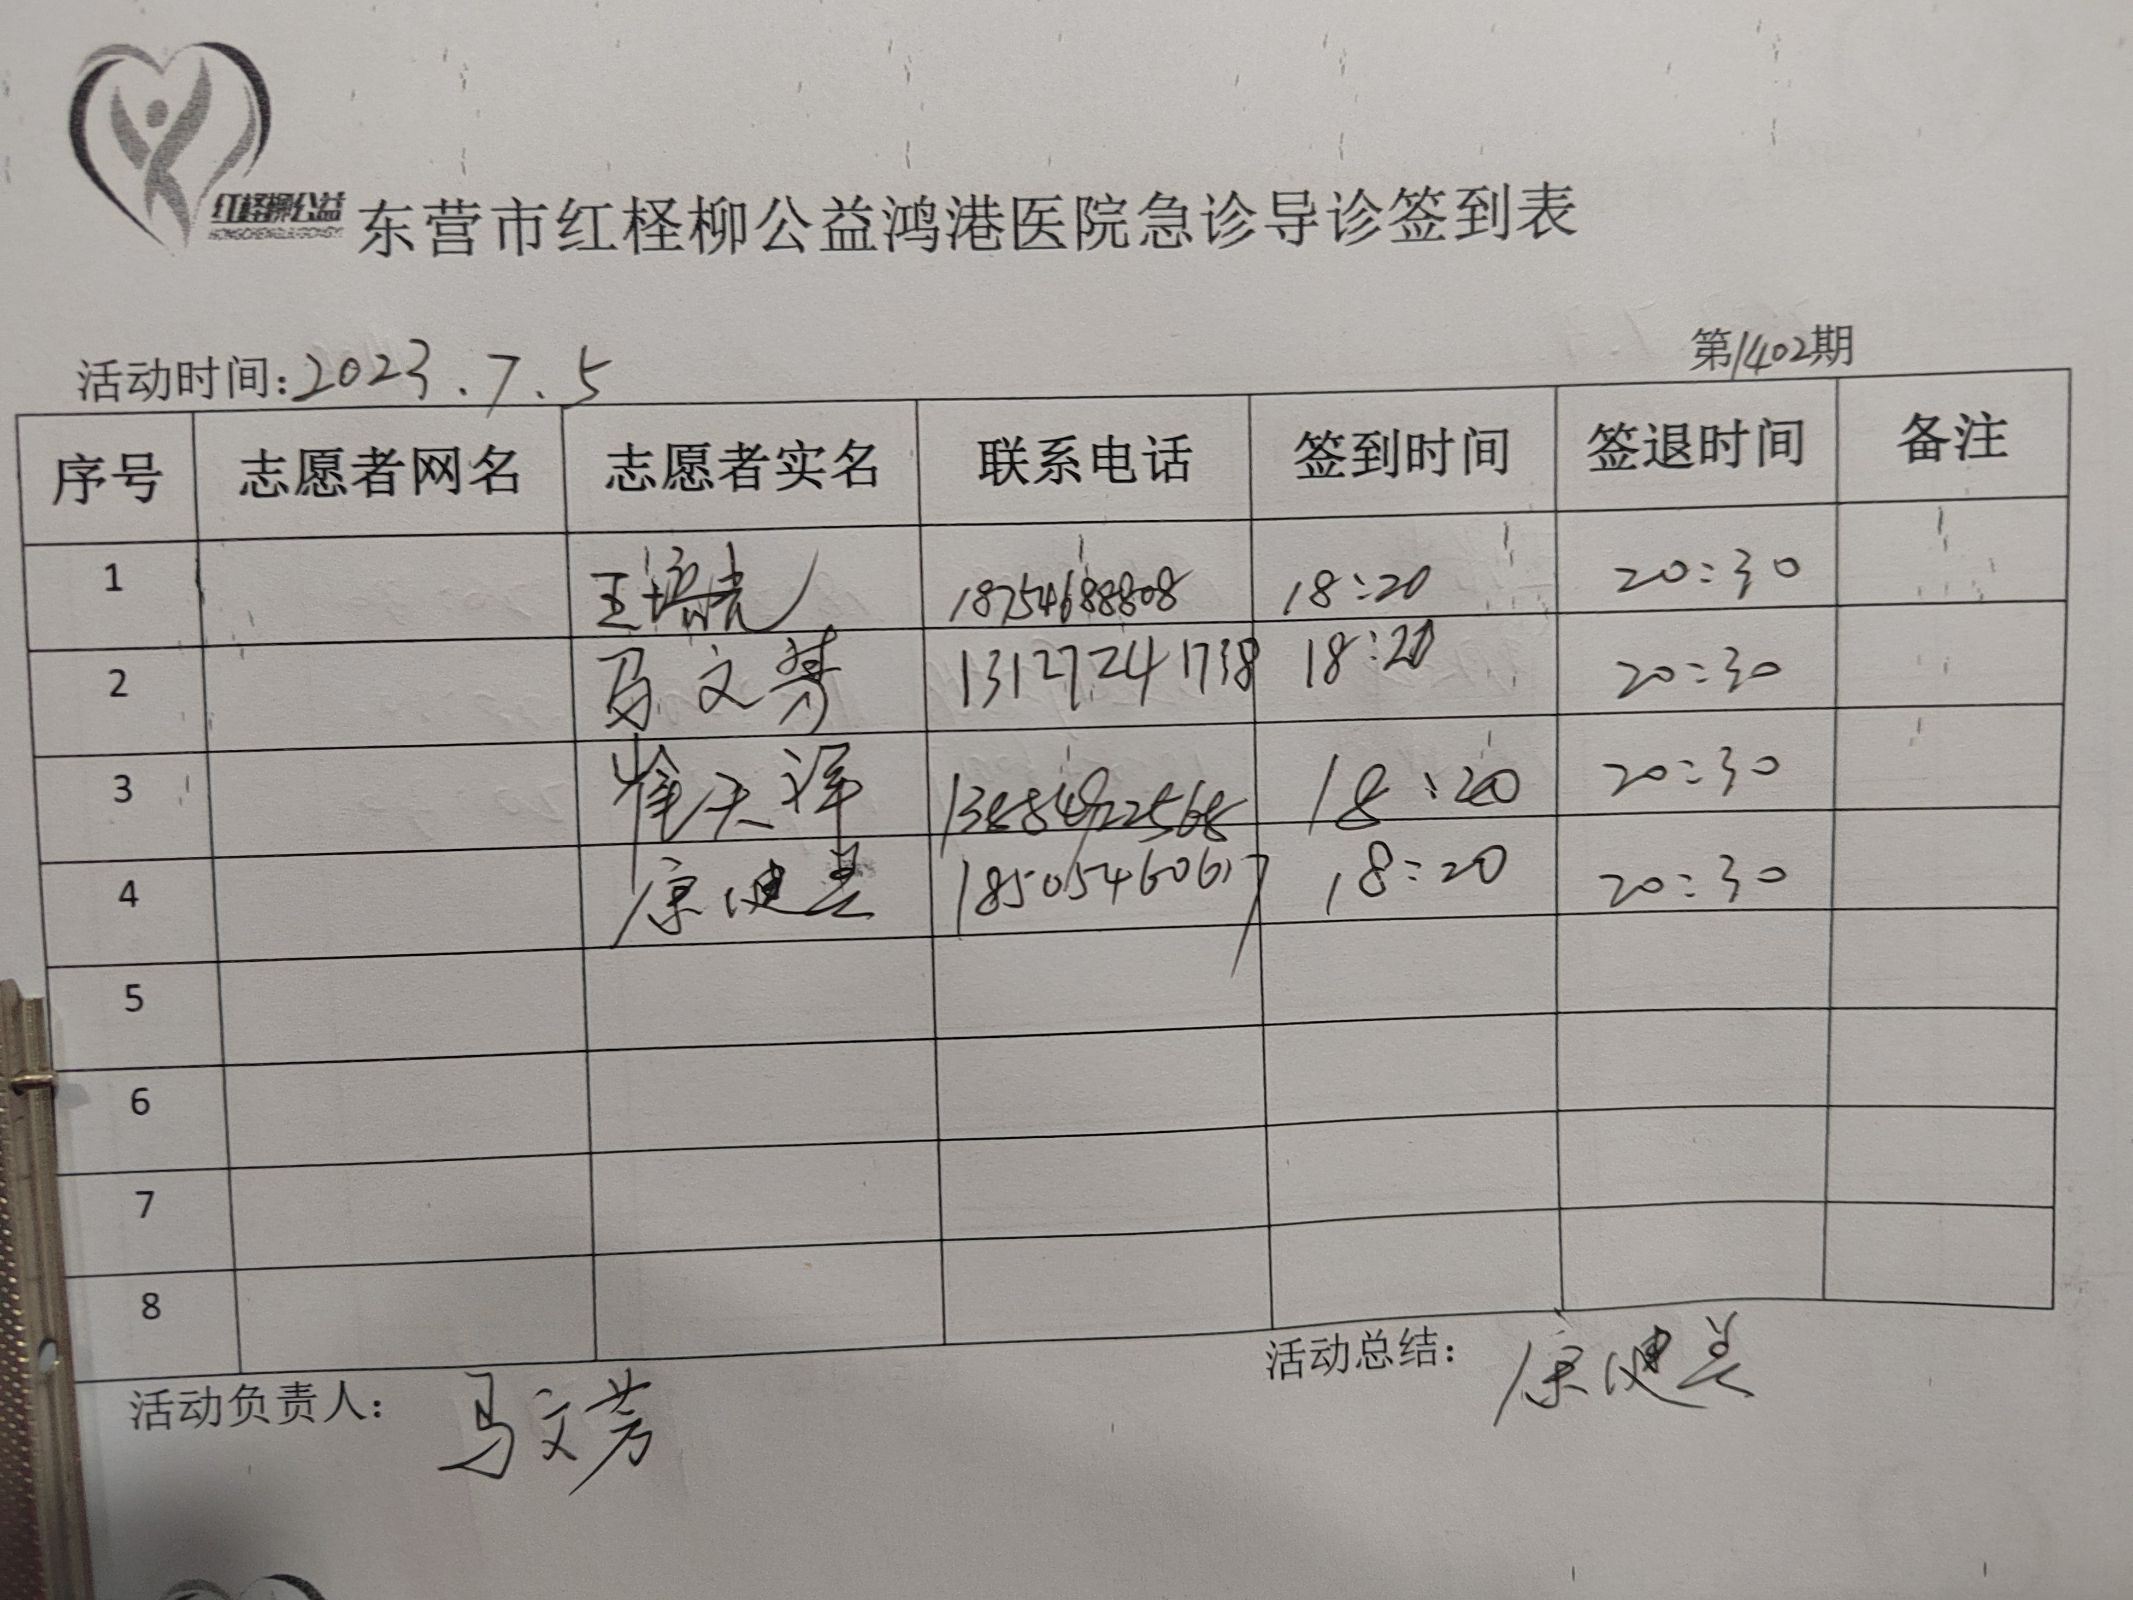 红柽柳公益
东营市红柽柳公益鸿港医院急诊导诊签到表
活动时间:2023.7.5 第1402期
序号 志愿者网名 志愿者实名 联系电话 签到时间 签退时间 备注
1 18754688808 18:20 20:30
2 马文芳 13127241738 18:20 20:30
3 崔天洋 18:20 20:30
4 康健美 18505460617 18:20 20:30
5
6
7
8
活动负责人: 马文芳 活动总结: 康健美